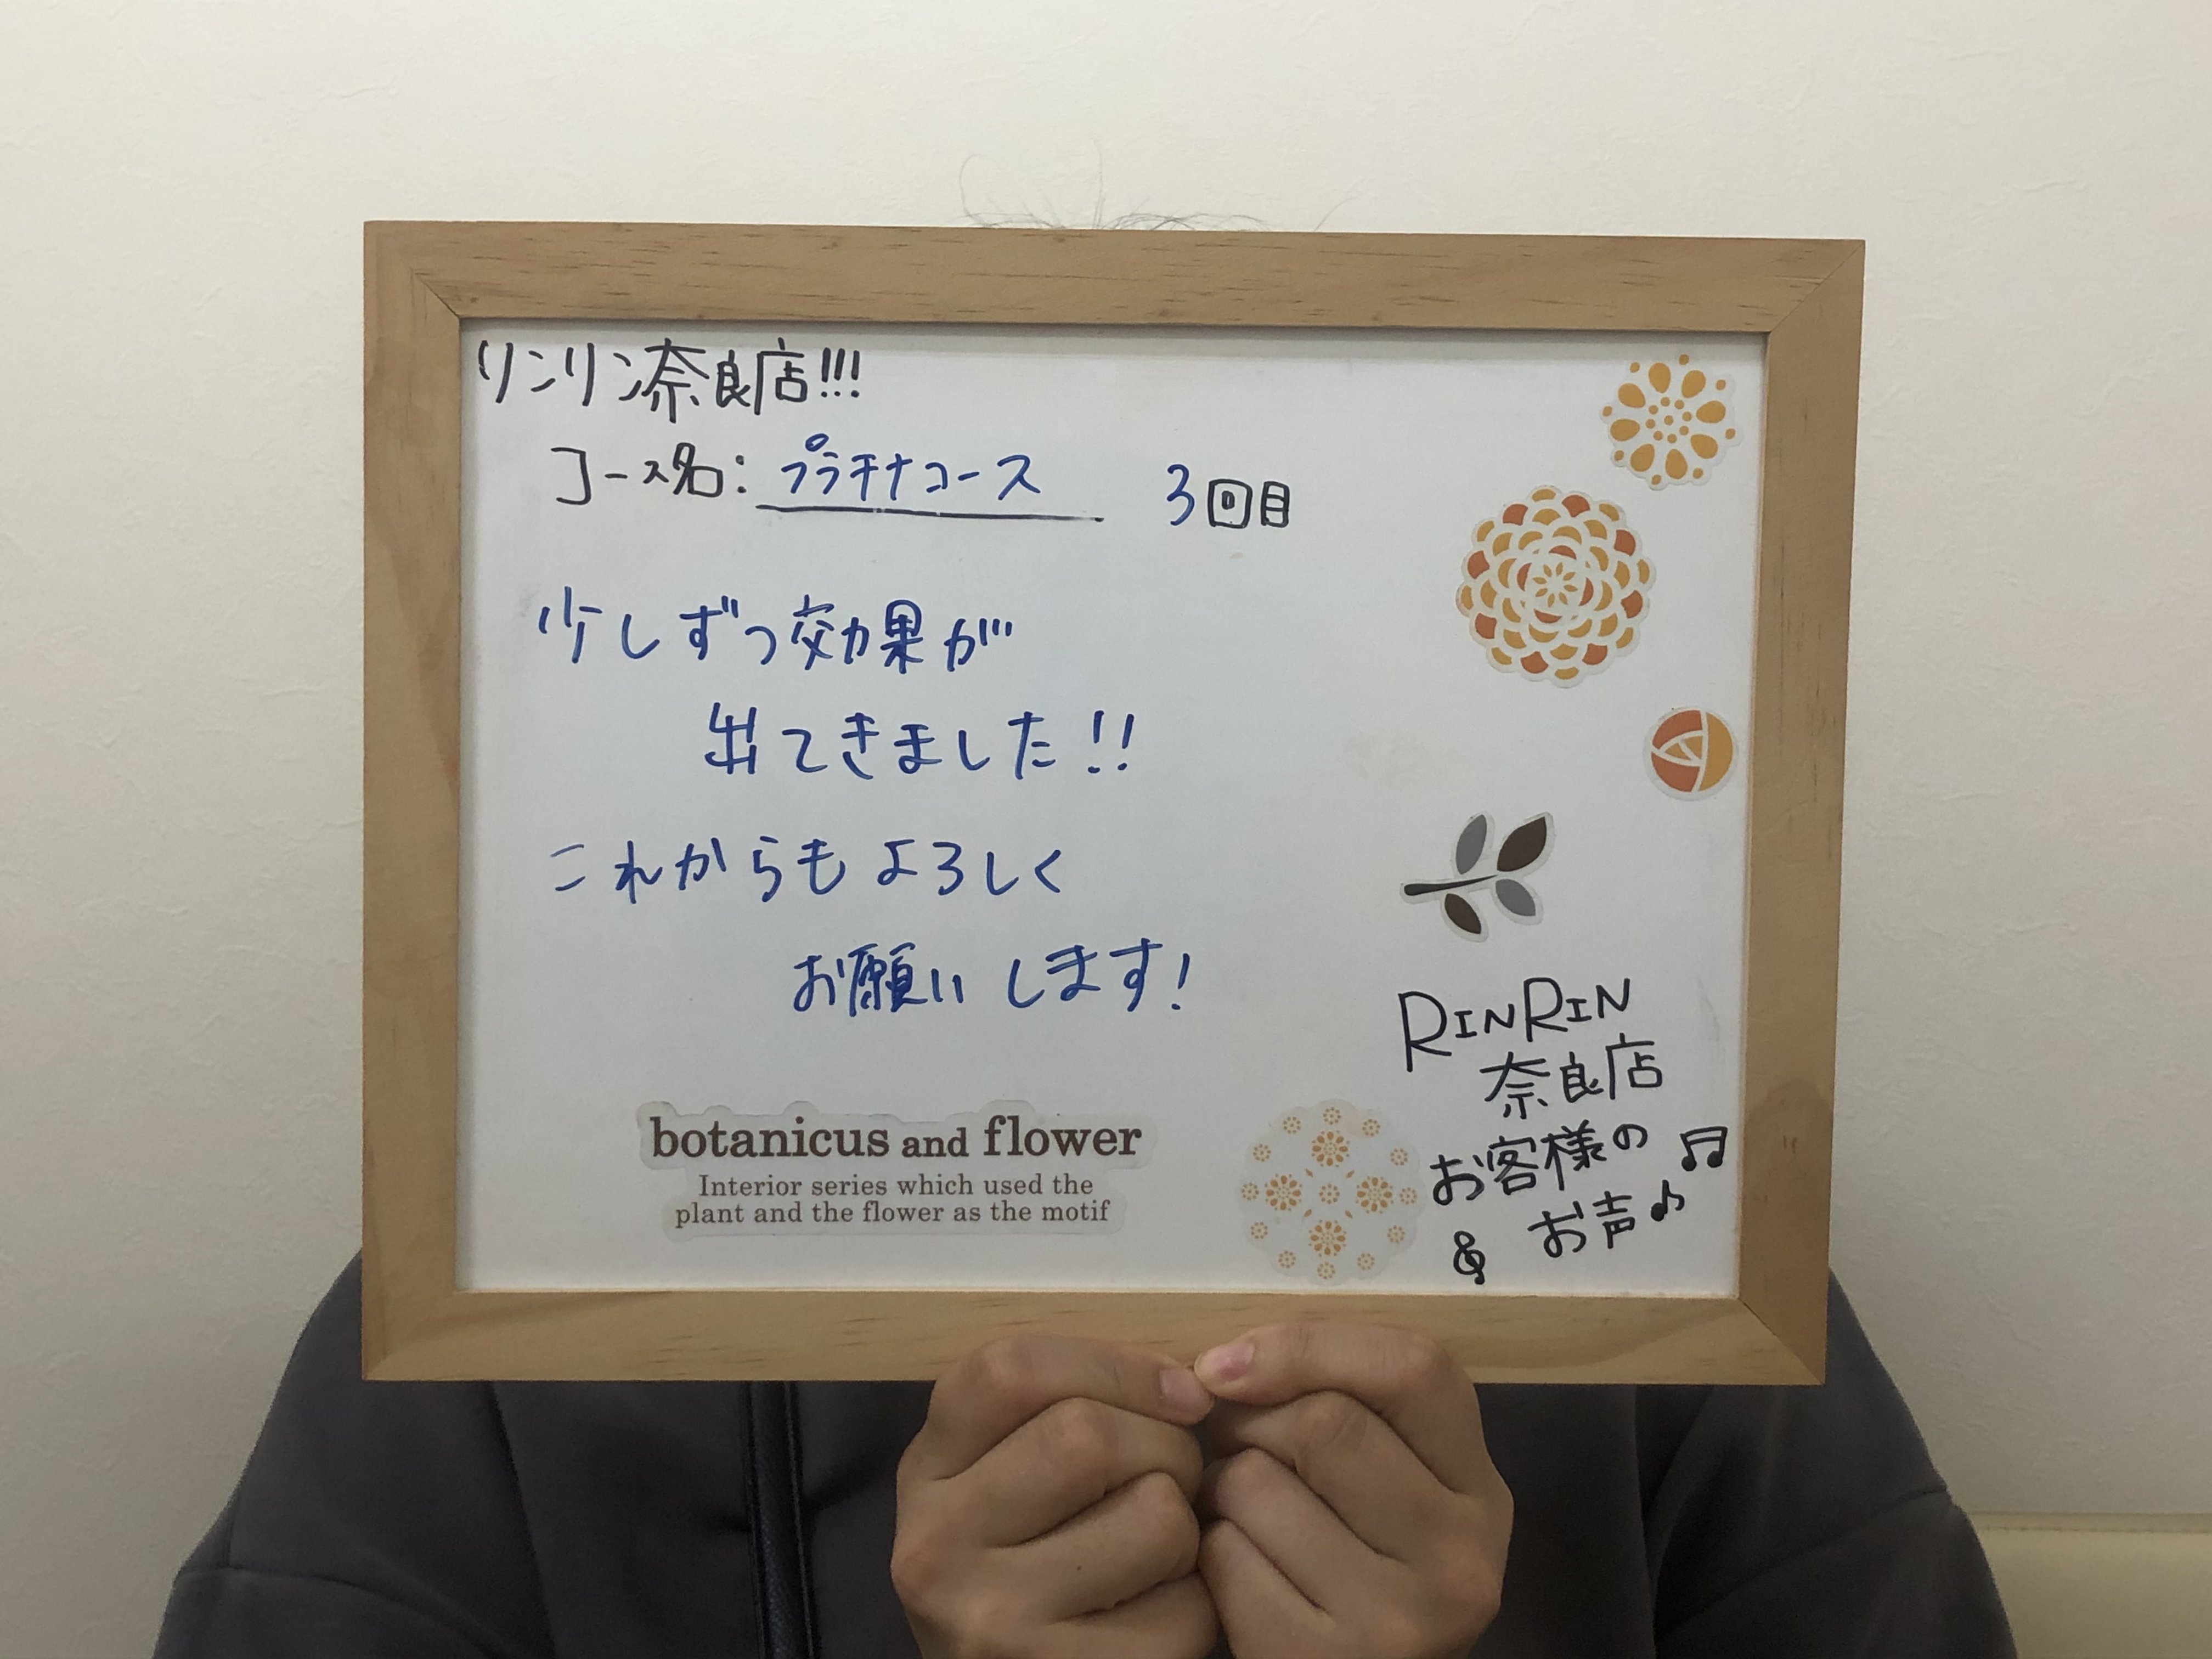 リンリン奈良店!!!
コース名: プラチナコース 3回目
少しずつ効果が
出てきました!!
これからもよろしく
お願いします!
botanicus and flower
Interior series which used the
plant and the flower as the motif
RINRIN
奈良店
お客様の
お声♪♫